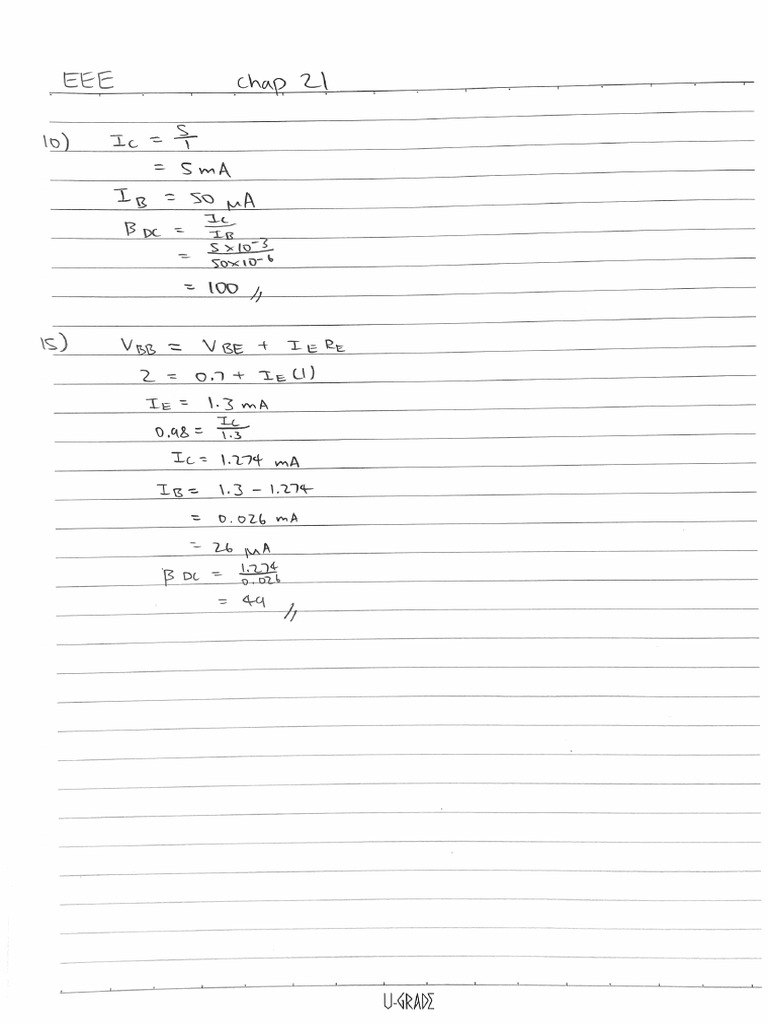 EEE chap 21
10) I_C = 5/1
= 5 mA
I_B = 50 μA
β_DC = I_C/I_B
= 5×10^-3/50×10^-6
= 100 //
15) V_BB = V_BE + I_E R_E
2 = 0.7 + I_E (1)
I_E = 1.3 mA
0.98 = I_C/1.3
I_C = 1.274 mA
I_B = 1.3 - 1.274
= 0.026 mA
= 26 μA
β_DC = 1.274/0.026
= 49 //
U-GRADE